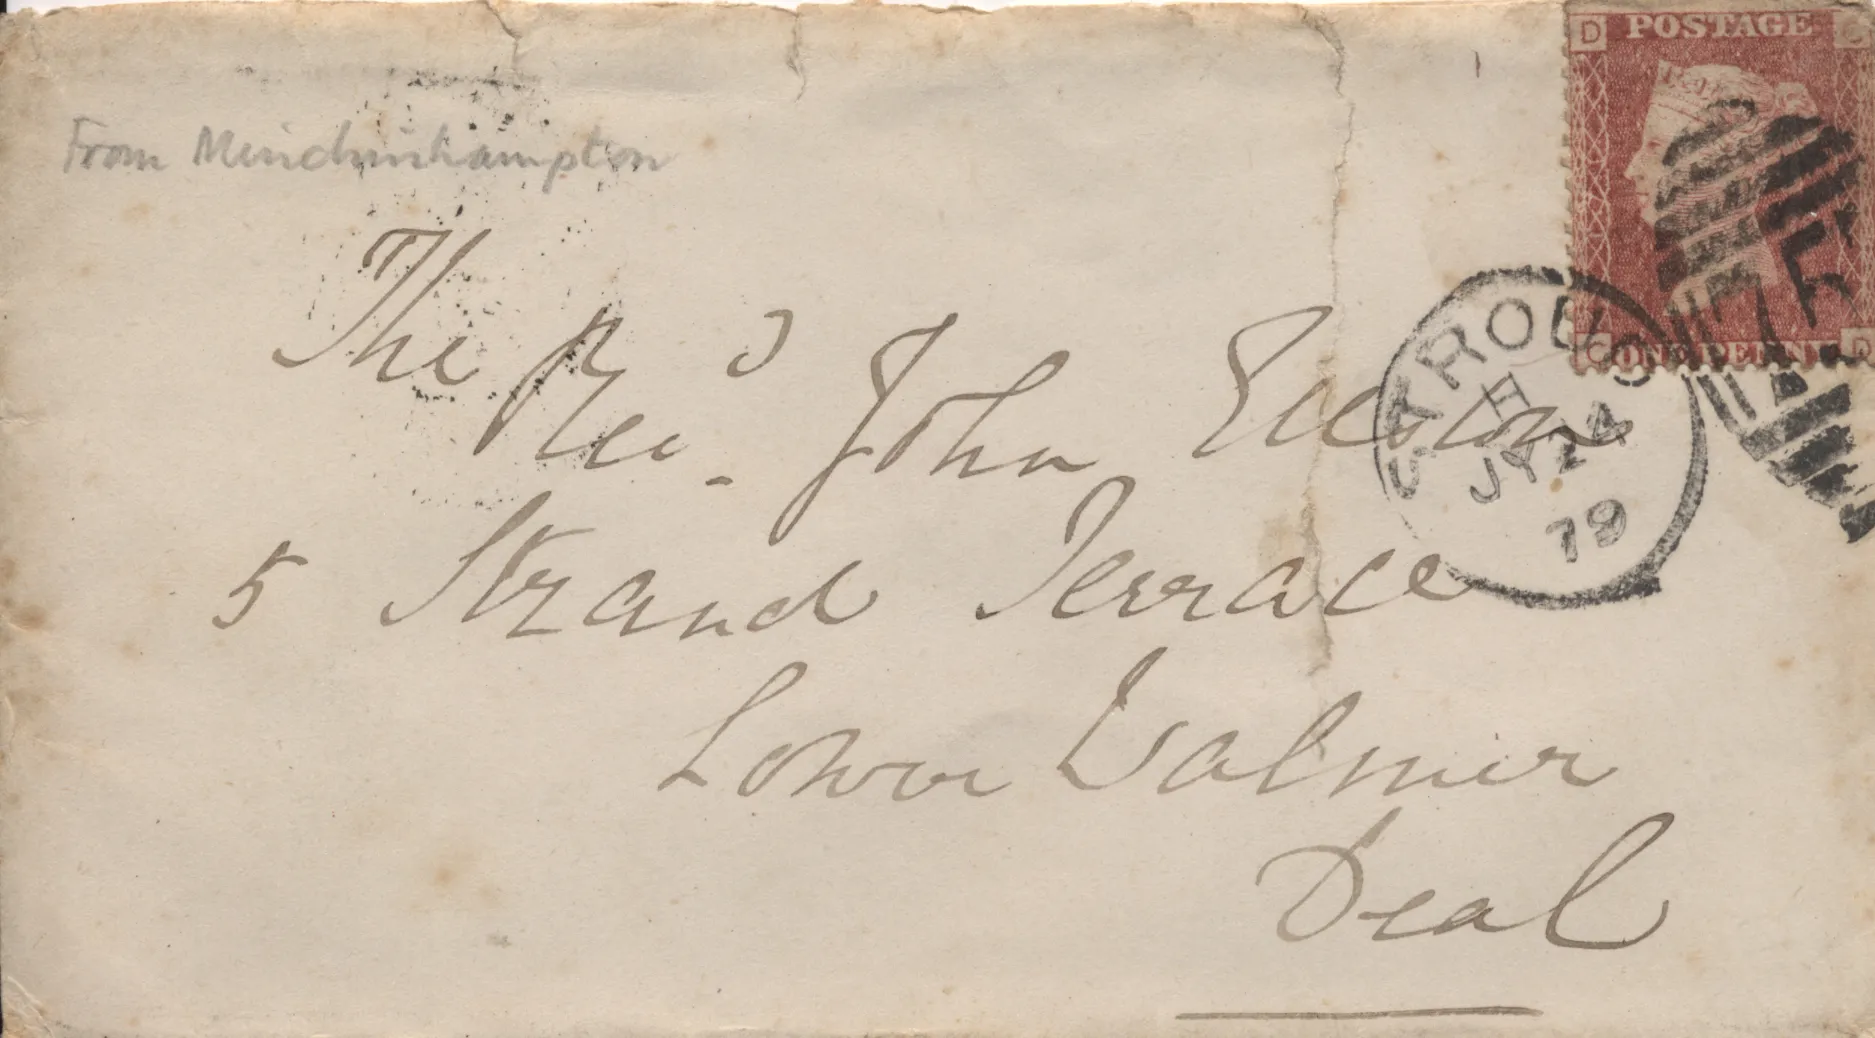 From Minchinhampton
D POSTAGE C
C ONE PENNY D
STROUD
H
JY 24
79
5
The Revd. John
5 Strand Terrace
Lower Walmer
Deal